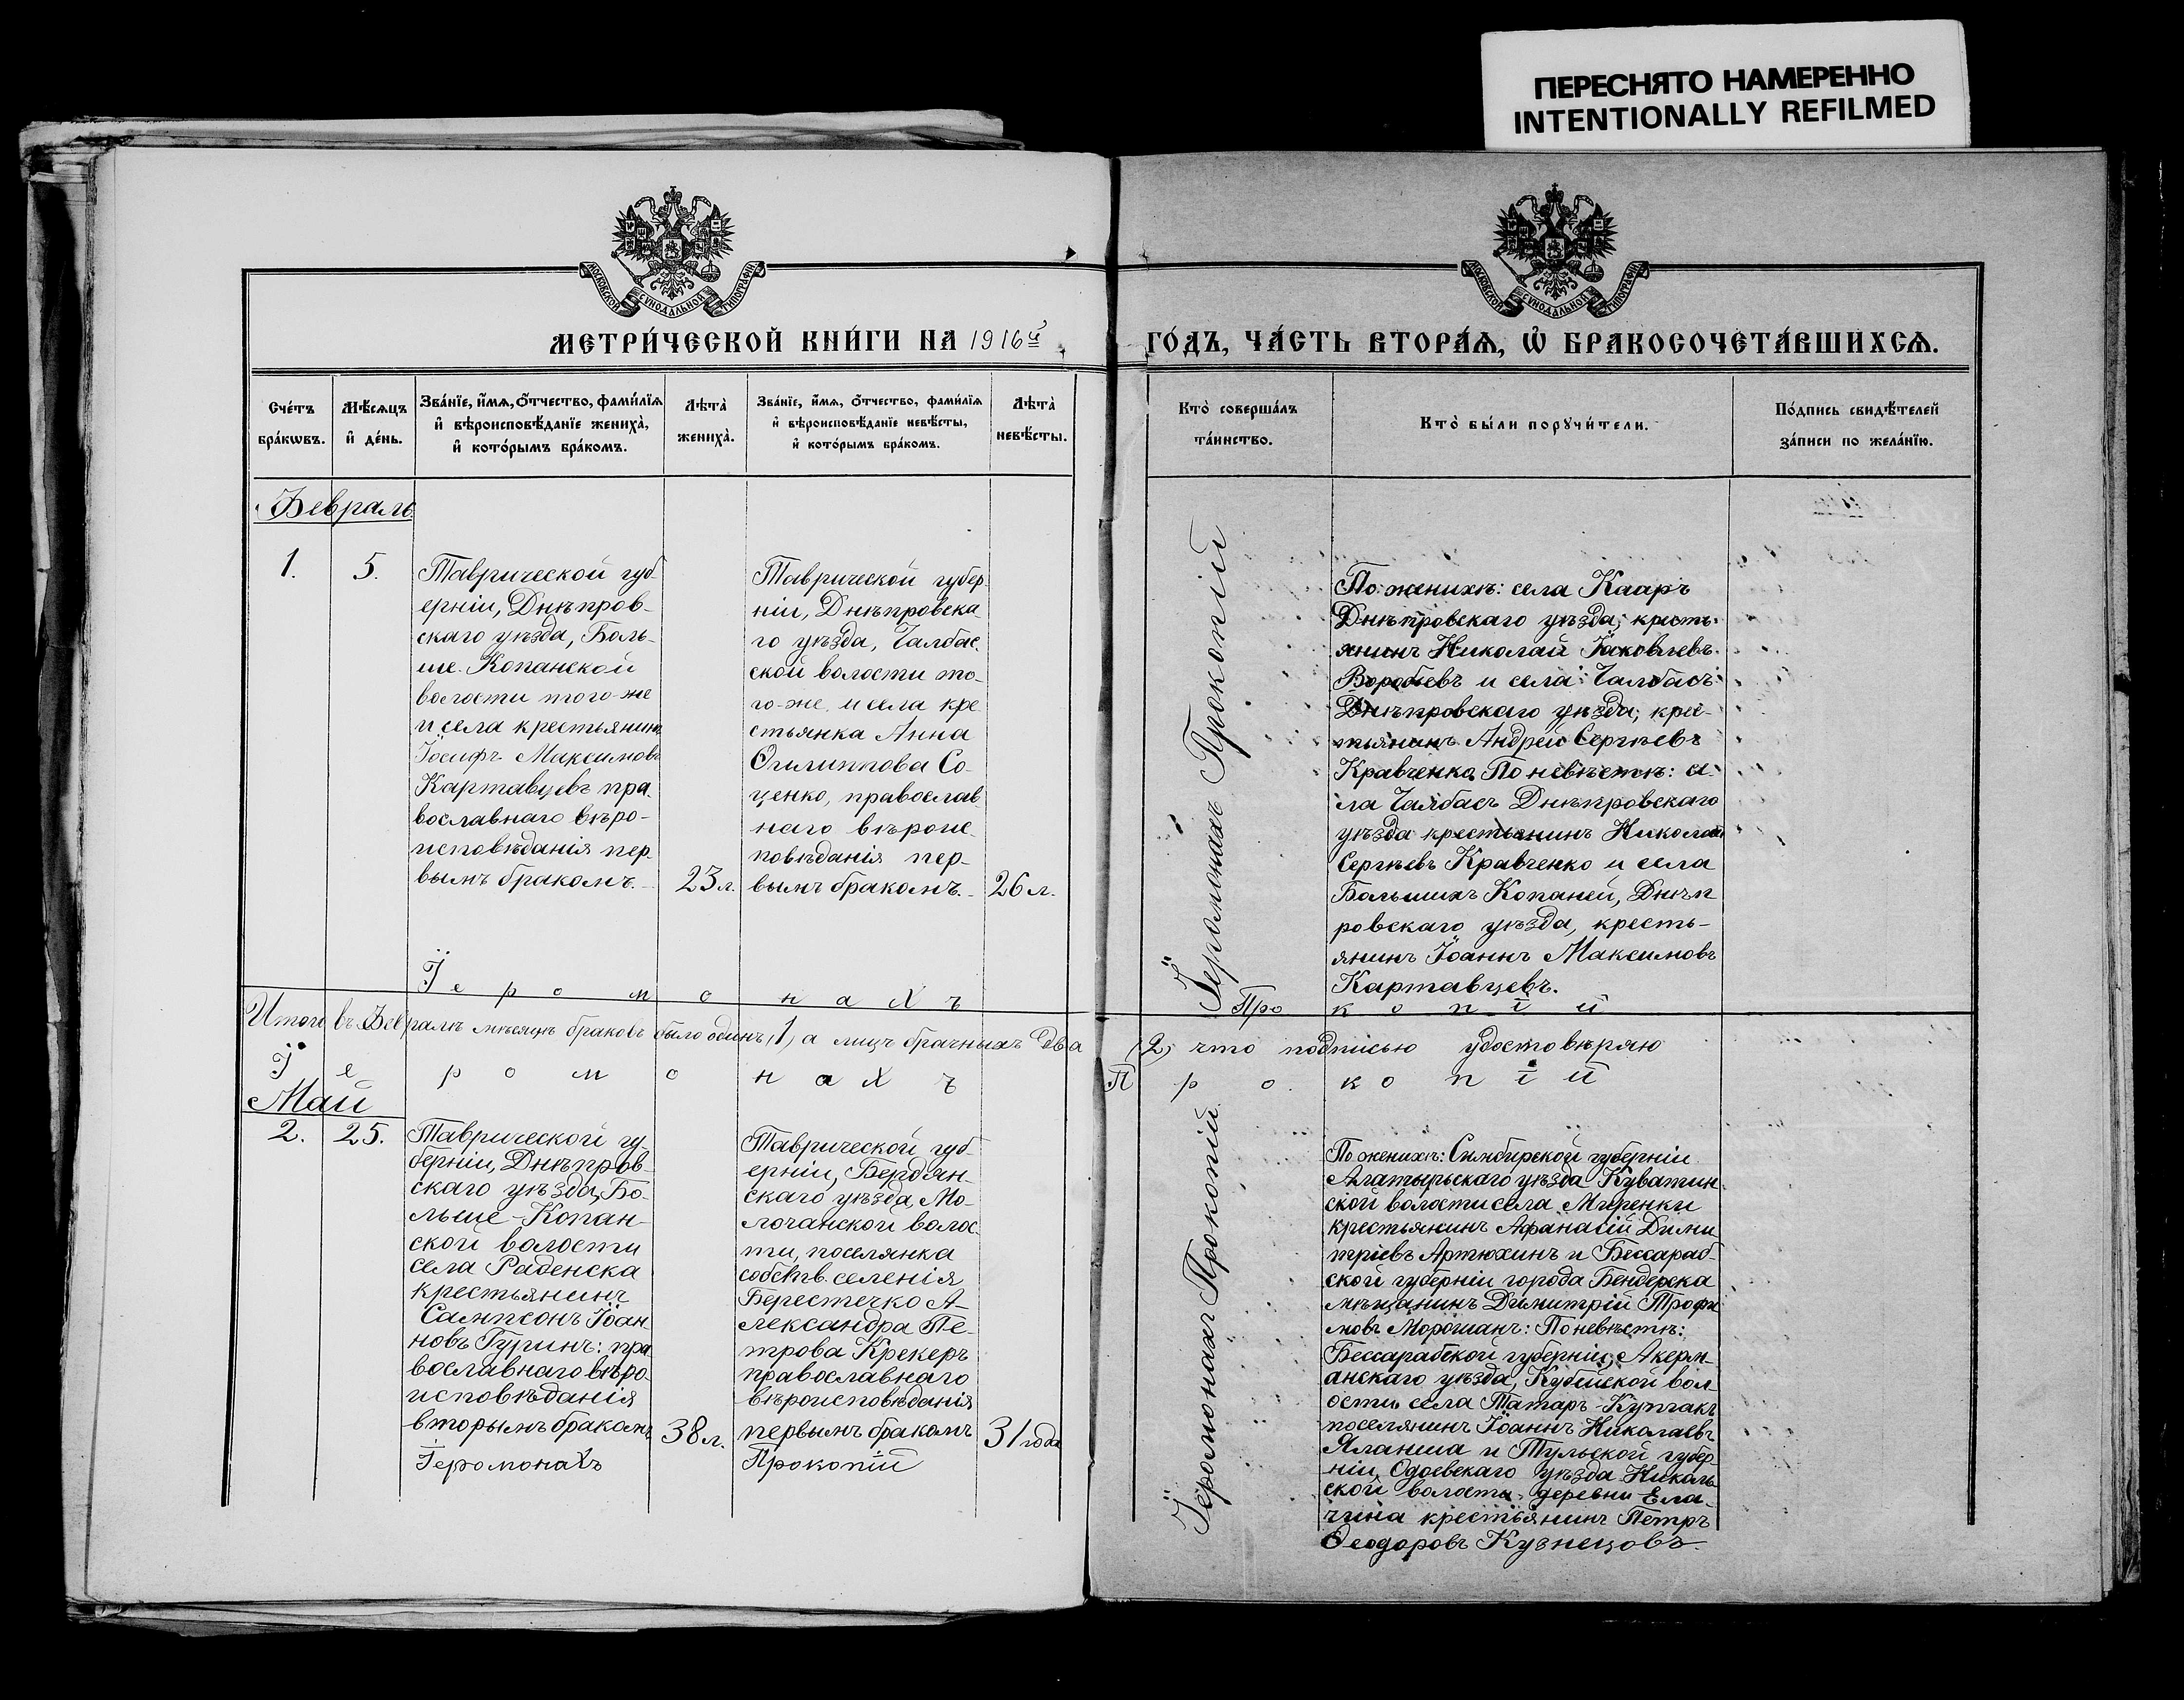 ПЕРЕСНЯТО НАМЕРЕННО
INTENTIONALLY REFILMED
МОСКОВСКОЙ СѴНОДАЛЬНОЙ ТИПОГРАФІИ
МОСКОВСКОЙ СѴНОДАЛЬНОЙ ТИПОГРАФІИ
МЕТРИ́ЧЕСКОЙ КНИ́ГИ НА 1916й
ГО́ДЪ, ЧА́СТЬ ВТОРА́Ѧ, Ѡ҆ БРАКОСОЧЕТА́ВШИХСѦ.
Сче́тъ
бра́кѡвъ.
Мѣ́сѧцъ
и҆ де́нь.
Зва́нїе, и҆́мѧ, ѻ҆́тчество, фами́лїѧ
и҆ вѣроисповѣ́данїе жениха̀,
и҆ кото́рымъ бра́комъ.
Лѣ́та̀
жениха̀.
Зва́нїе, и҆́мѧ, ѻ҆́тчество, фами́лїѧ
и҆ вѣроисповѣ́данїе невѣ́сты,
и҆ кото́рымъ бра́комъ.
Лѣ́та̀
невѣ́сты.
Кто̀ соверша́лъ
та́инство.
Кто̀ бы́ли порꙋчи́тели.
По́дпись свидѣ́телей
за́писи по жела́нїю.
Февраль
1.
5.
Таврической губ-
ерніи, Днѣпров-
скаго уѣзда, Боль-
ше-Копанской
волости того-же
и села крестьянинъ
Іосифъ Максимовъ
Картавцевъ пра-
вославнаго вѣро-
исповѣданія пер-
вымъ бракомъ.-
23 л.
Таврической губер-
ніи, Днѣпровска-
го уѣзда, Чалбас-
ской волости то-
го-же и села кре
стьянка Анна
Филиппова Со-
ценко, православ-
наго вѣроис-
повѣданія пер-
вымъ бракомъ.-
26 л.
Іеромонахъ Прокопій
По женихѣ: села Кааръ
Днѣпровскаго уѣзда, кресть-
янинъ Николай Іаковлевъ
Воробьевъ и села Чалбасъ
Днѣпровскаго уѣзда, крес-
тьянинъ Андрей Сергѣевъ
Кравченко По невѣстѣ: се-
ла Чалбасъ Днѣпровскаго
уѣзда крестьянинъ Николай
Сергѣевъ Кравченко и села
Большихъ Копаней, Днѣп
ровскаго уѣзда, кресть-
янинъ Іоаннъ Максимовъ
Картавцевъ.
Іеромонахъ Прокопій
Итого въ Февралѣ мѣсяцѣ браковъ было одинъ (1) а лицъ брачныхъ два (2) что подписью удостовѣряю
Іеромонахъ Прокопій
Май
2.
25.
Таврической гу-
берніи, Днѣпров-
скаго уѣзда, Бо-
льше-Копан-
ской волости
села Раденска
крестьянинъ
Сампсонъ Іоан-
новъ Гуринъ: пра
вославнаго вѣро
исповѣданія
вторымъ бракомъ
38 л.
Таврической губ-
ерніи, Бердян-
скаго уѣзда, Мо-
лочанской волос-
ти, поселянка
собств. селенія
Берестечко А-
лександра Пе-
трова Крекеръ
православнаго
вѣроисповѣданія
первымъ бракомъ
31 года
Іеромонахъ Прокопій
Іеромонахъ Прокопій
По женихѣ: Симбирской губерніи
Алатырьскаго уѣзда Куватин-
ской волости села Миренки
крестьянинъ Афанасій Дими
тріевъ Артюхинъ и Бессараб-
ской губерніи города Бендерска
мѣщанинъ Димитрій Трофи
мовъ Морошанъ: По невѣстѣ:
Бессарабской губерніи, Акерм-
анскаго уѣзда, Кубейской вол-
ости села Татаръ-Купчакъ
поселянинъ Іоаннъ Николаевъ
Яланжа и Тульской губер-
ніи, Одоевскаго уѣзда Николь
ской волости, деревни Ела-
чина крестьянинъ Петръ
Феодоровъ Кузнецовъ.